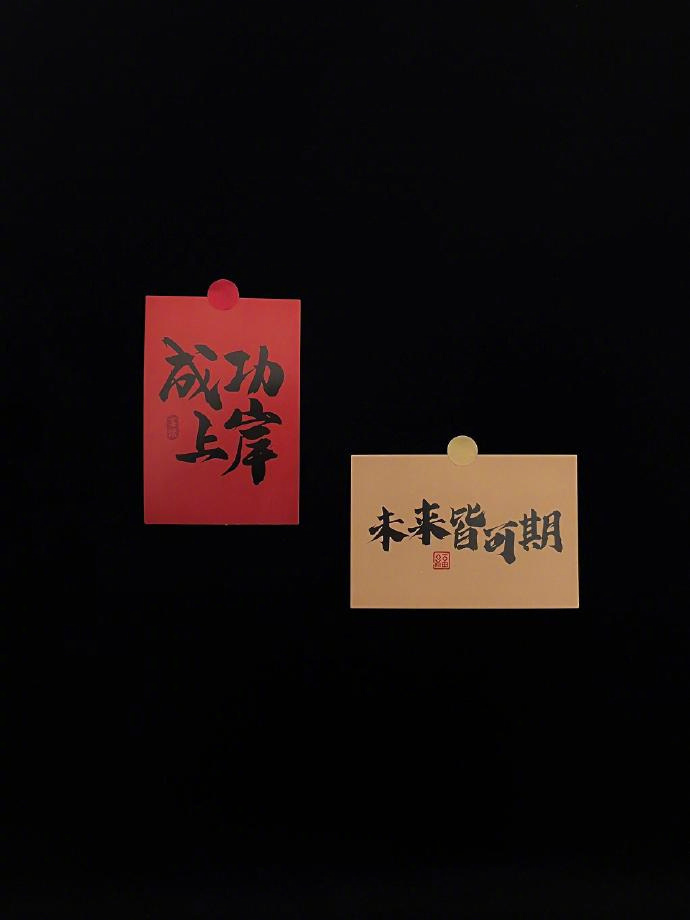 成功
上岸
未来皆可期